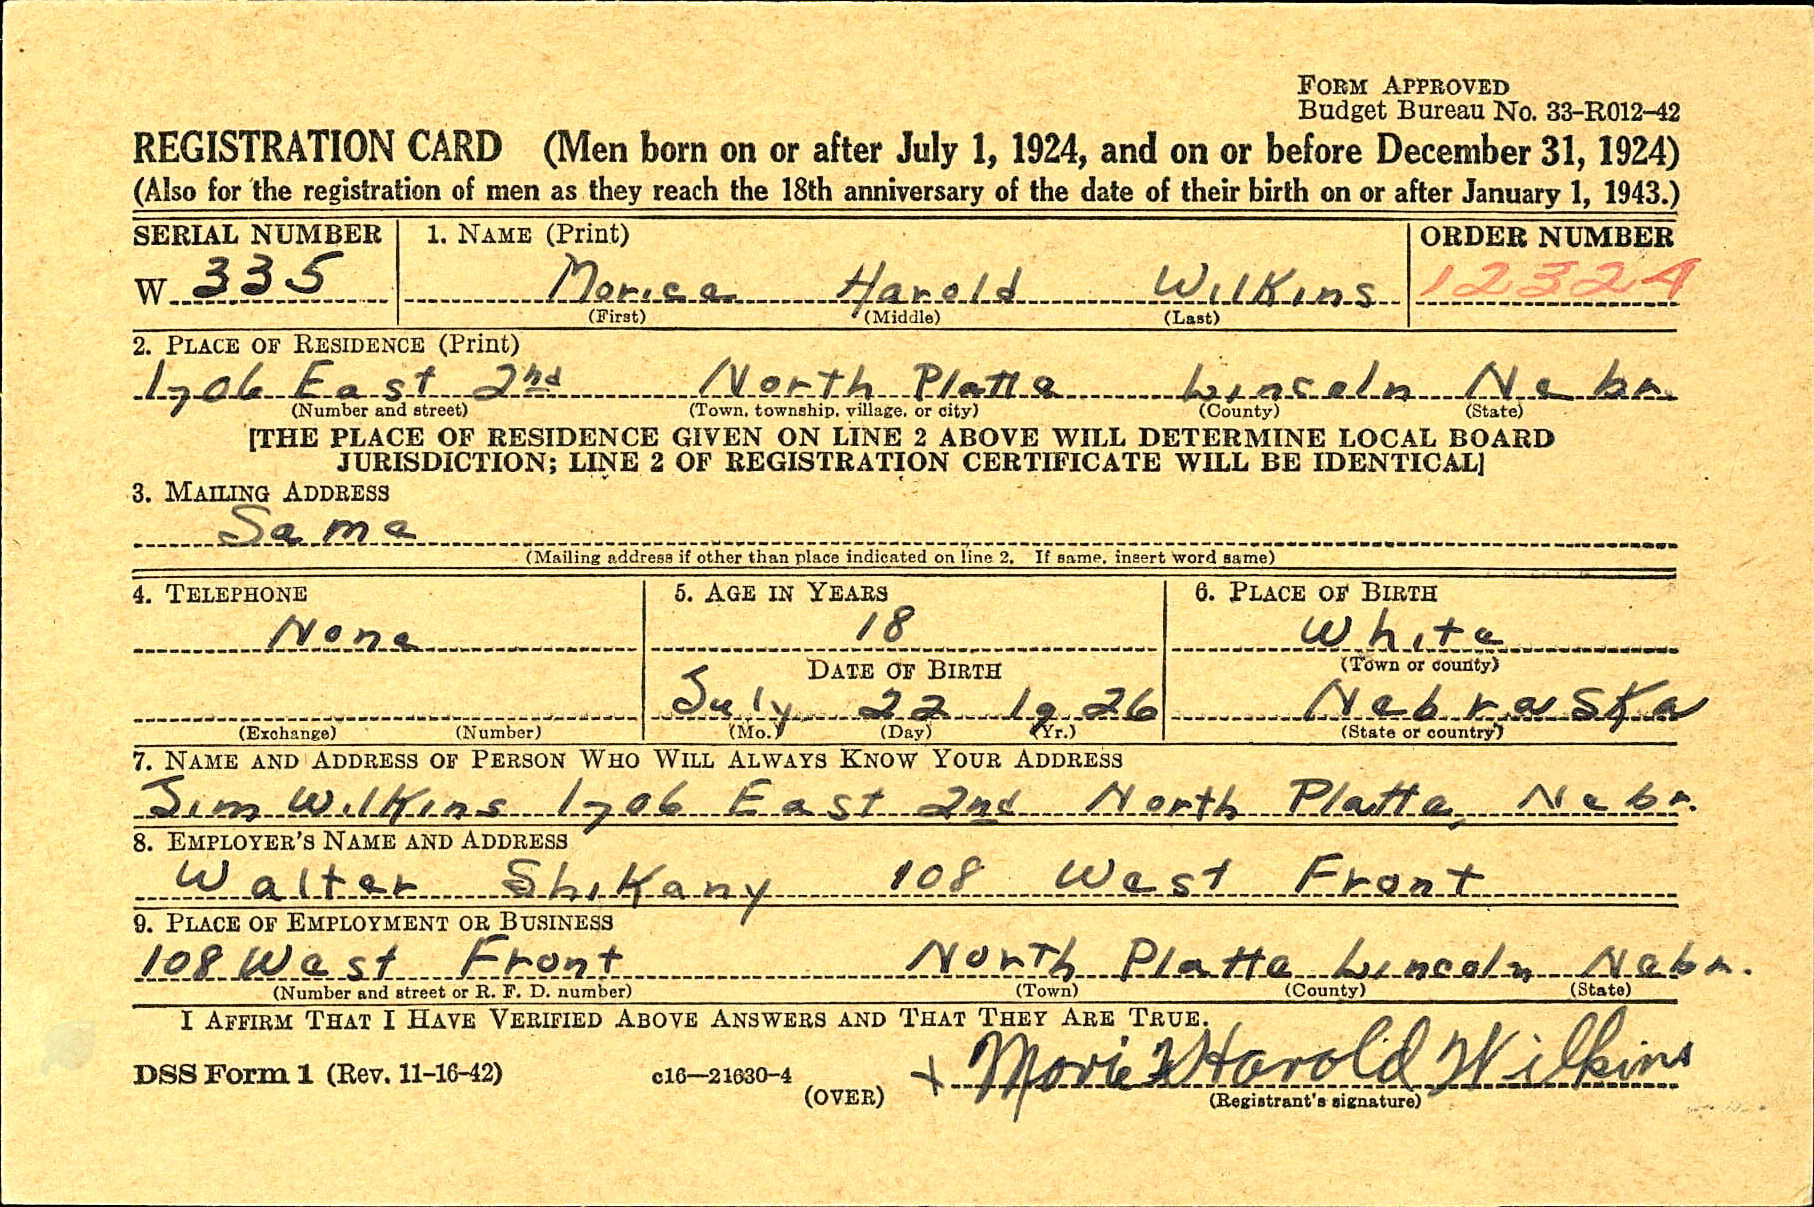 FORM APPROVED
Budget Bureau No. 33-R012-42
REGISTRATION CARD (Men born on or after July 1, 1924, and on or before December 31, 1924)
(Also for the registration of men as they reach the 18th anniversary of the date of their birth on or after January 1, 1943.)
SERIAL NUMBER 1. NAME (Print) ORDER NUMBER
W 335 Morice Harold Wilkins 12324
(First) (Middle) (Last)
2. PLACE OF RESIDENCE (Print)
1706 East 2nd North Platte Lincoln Nebr.
(Number and street) (Town, township, village, or city) (County) (State)
[THE PLACE OF RESIDENCE GIVEN ON LINE 2 ABOVE WILL DETERMINE LOCAL BOARD
JURISDICTION; LINE 2 OF REGISTRATION CERTIFICATE WILL BE IDENTICAL]
3. MAILING ADDRESS
Same
(Mailing address if other than place indicated on line 2. If same, insert word same)
4. TELEPHONE 5. AGE IN YEARS 6. PLACE OF BIRTH
None 18 White
DATE OF BIRTH (Town or county)
July 22 1926 Nebraska
(Exchange) (Number) (Mo.) (Day) (Yr.) (State or country)
7. NAME AND ADDRESS OF PERSON WHO WILL ALWAYS KNOW YOUR ADDRESS
Jim Wilkins 1706 East 2nd North Platte, Nebr.
8. EMPLOYER'S NAME AND ADDRESS
Walter Shikany 108 West Front
9. PLACE OF EMPLOYMENT OR BUSINESS
108 West Front North Platte Lincoln Nebr.
(Number and street or R. F. D. number) (Town) (County) (State)
I AFFIRM THAT I HAVE VERIFIED ABOVE ANSWERS AND THAT THEY ARE TRUE.
DSS Form 1 (Rev. 11-16-42) c16—21630-4 (OVER) x Harold Wilkins
(Registrant's signature)